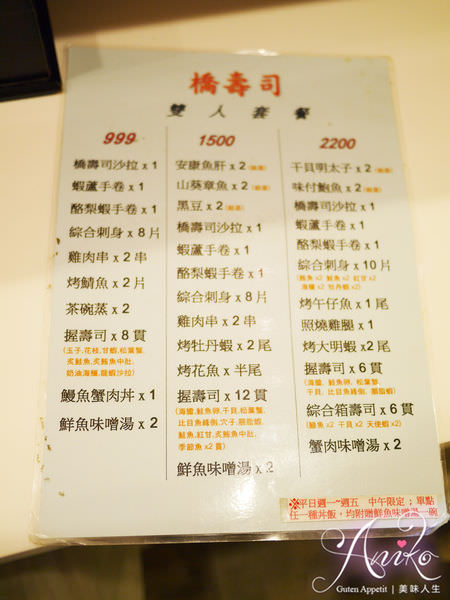 橋壽司
雙人套餐
999
橋壽司沙拉 x 1
蝦蘆手卷 x 1
酪梨蝦手卷 x 1
綜合刺身 x 8 片
雞肉串 x 2 串
烤鯖魚 x 2 片
茶碗蒸 x 2
握壽司 x 8 貫
(玉子,花枝,甘蝦,松葉蟹,
炙鮭魚,炙鮪魚中肚,
奶油海鱺,龍蝦沙拉)
鰻魚蟹肉丼 x 1
鮮魚味噌湯 x 2
1500
安康魚肝 x 2
山葵章魚 x 2
黑豆 x 2
橋壽司沙拉 x 1
蝦蘆手卷 x 1
酪梨蝦手卷 x 1
綜合刺身 x 8 片
雞肉串 x 2 串
烤牡丹蝦 x 2 尾
烤花魚 x 半尾
握壽司 x 12 貫
(海膽,鮭魚卵,干貝,松葉蟹,
比目魚緣側,穴子,胭脂蝦
鮭魚,紅甘,炙鮪魚中肚,
季節魚 x2 貫)
鮮魚味噌湯 x 2
2200
干貝明太子 x 2
味付鮑魚 x 2
橋壽司沙拉 x 1
蝦蘆手卷 x 1
酪梨蝦手卷 x 1
綜合刺身 x 10 片
(鮪魚 x2 鮭魚 x2 紅甘 x2
海鱺 x2 牡丹蝦 x2)
烤午仔魚 x 1 尾
照燒雞腿 x 1
烤大明蝦 x 2 尾
握壽司 x 6 貫
(海膽, 鮭魚卵, 松葉蟹,
干貝, 比目魚緣側, 胭脂蝦)
綜合箱壽司 x 6 貫
(鰻魚 x2 干貝 x2 天使蝦 x2)
蟹肉味噌湯 x 2
※平日週一~週五 中午限定；單點
任一種丼飯，均附贈鮮魚味噌湯一碗
Aniko
Guten Appetit | 美味人生